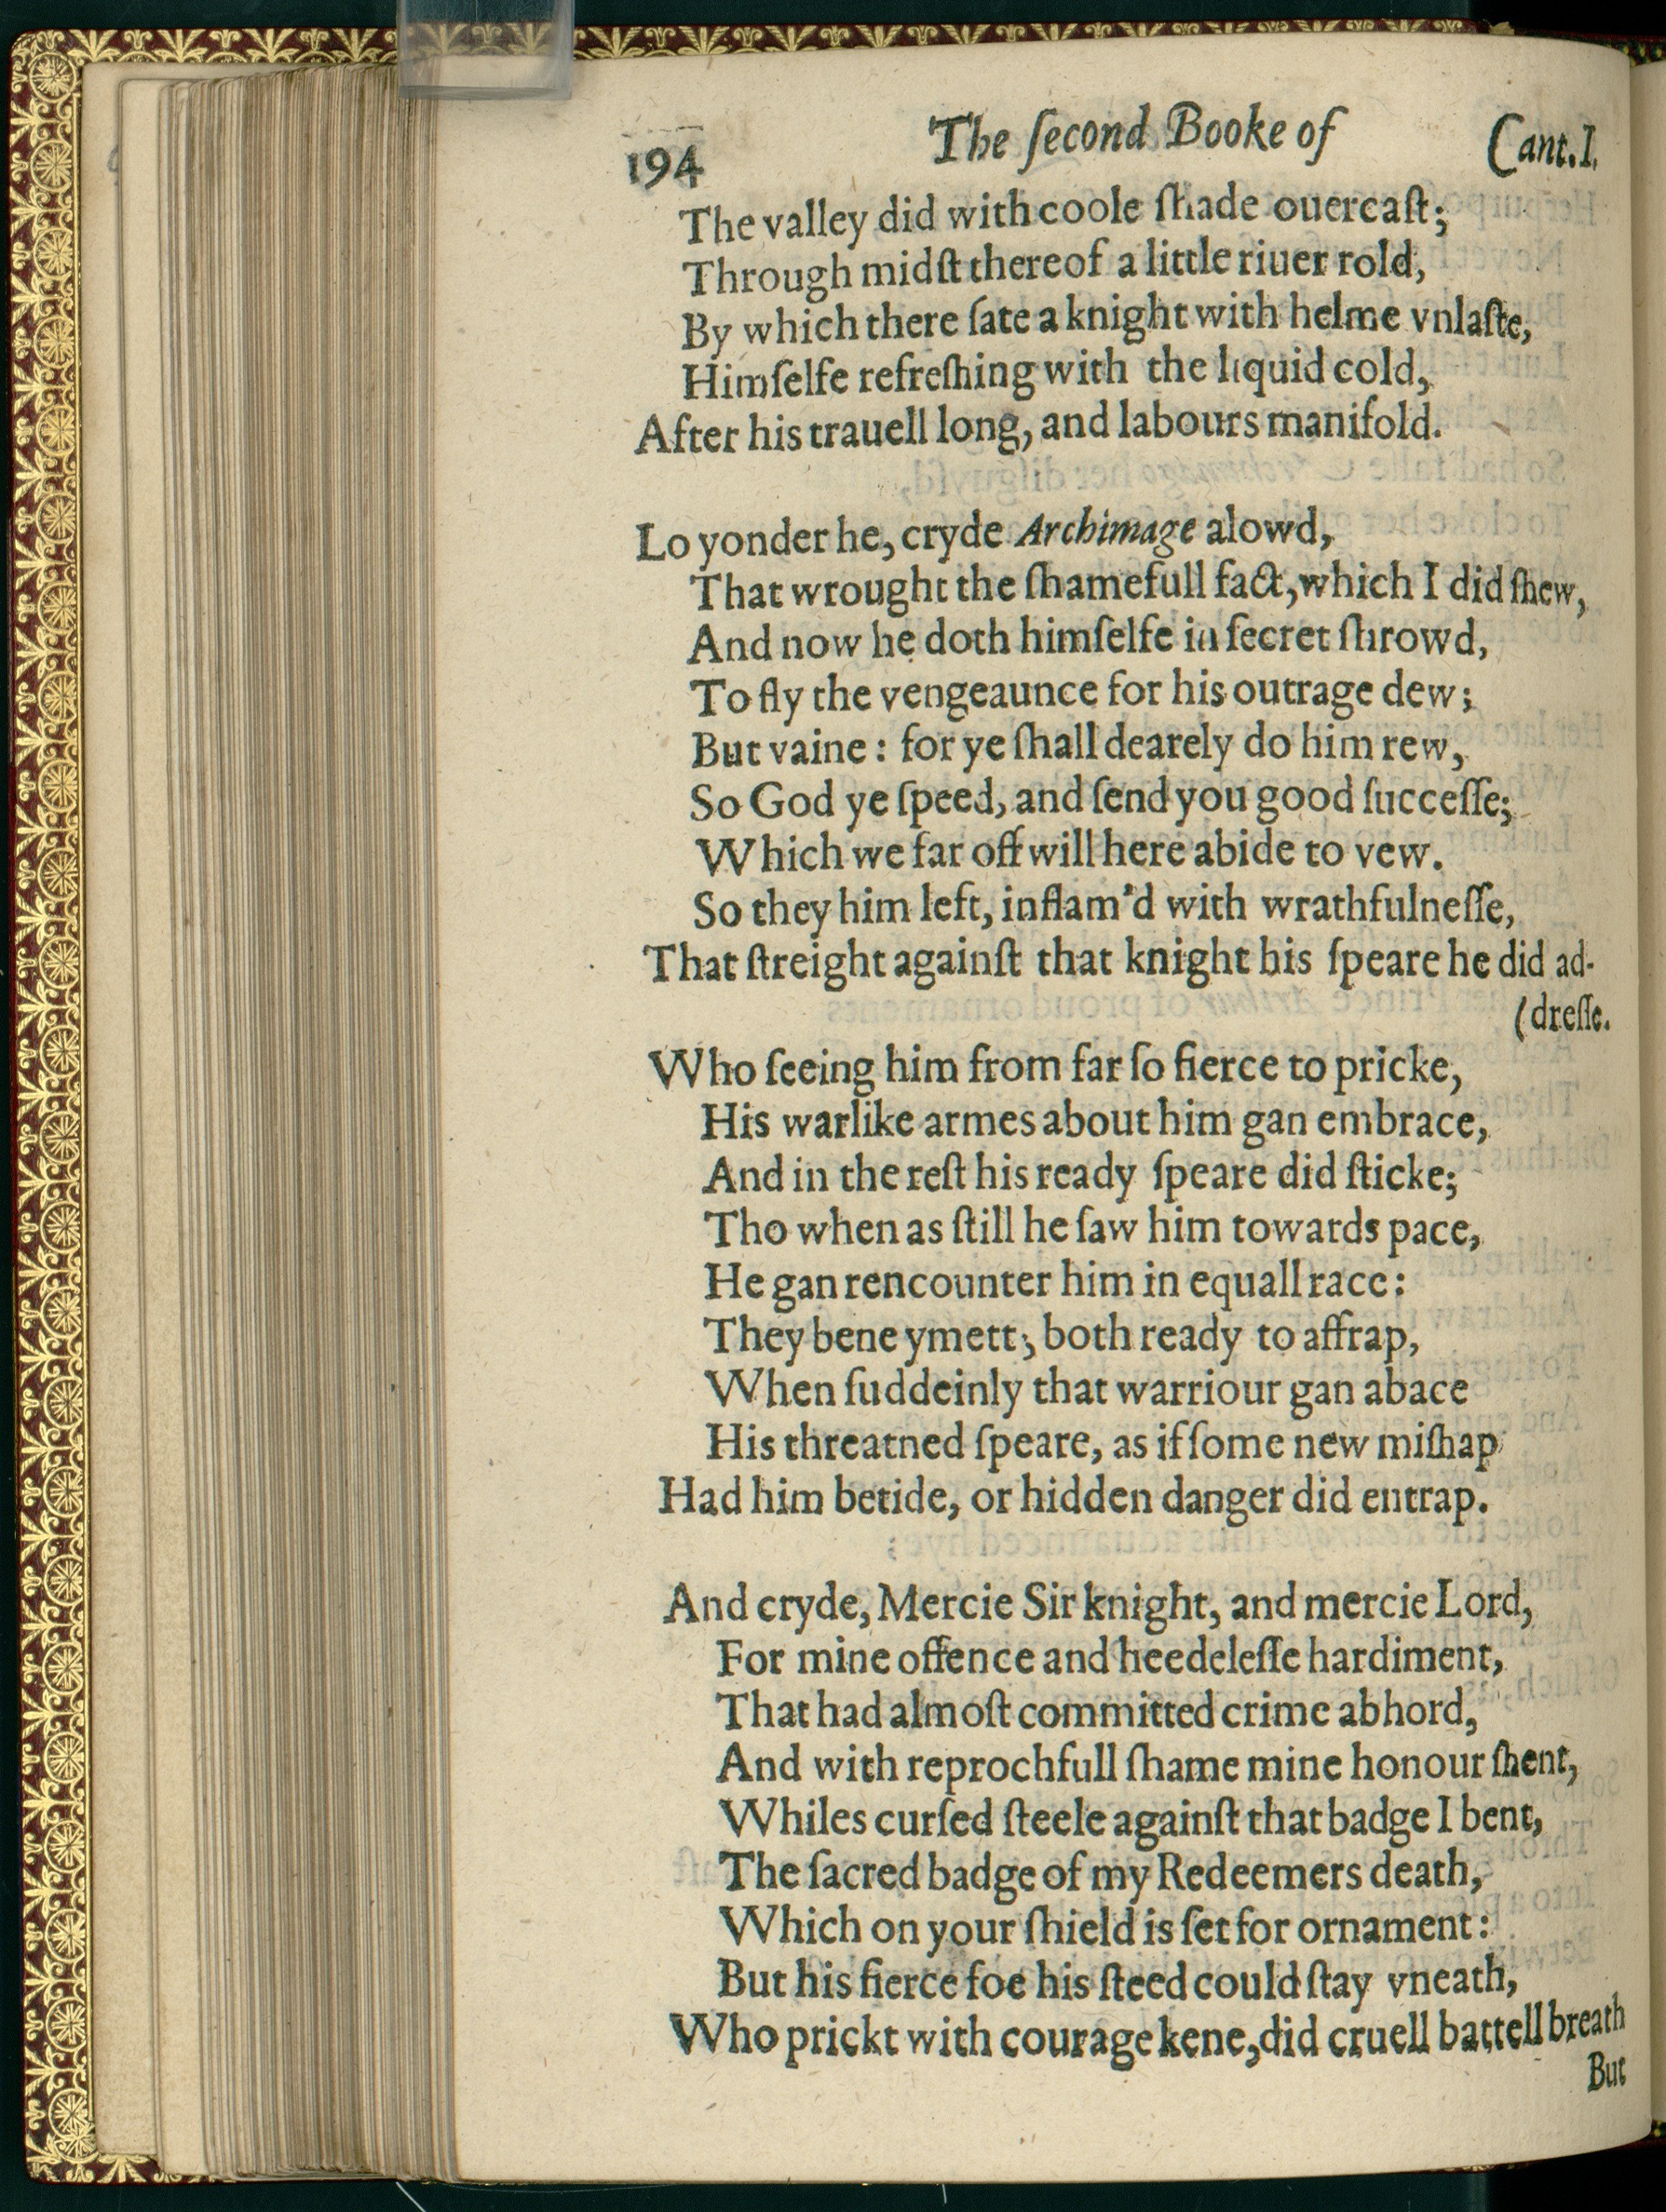 194
The ſecond Booke of
Cant. I.
The valley did with coole ſhade ouercaſt;
Through midſt thereof a little riuer rold,
By which there ſate a knight with helme vnlaſte,
Himſelfe refreſhing with the liquid cold,
After his trauell long, and labours manifold.
Lo yonder he, cryde Archimage alowd,
That wrought the ſhamefull fact, which I did ſhew,
And now he doth himſelfe in ſecret ſhrowd,
To fly the vengeaunce for his outrage dew;
But vaine: for ye ſhall dearely do him rew,
So God ye ſpeed, and ſend you good ſucceſſe;
Which we far off will here abide to vew.
So they him left, inflam'd with wrathfulneſſe,
That ſtreight againſt that knight his ſpeare he did ad-
(dreſſe.
Who ſeeing him from far ſo fierce to pricke,
His warlike armes about him gan embrace,
And in the reſt his ready ſpeare did ſticke;
Tho when as ſtill he ſaw him towards pace,
He gan rencounter him in equall race:
They bene ymett, both ready to affrap,
When ſuddeinly that warriour gan abace
His threatned ſpeare, as if ſome new miſhap
Had him betide, or hidden danger did entrap.
And cryde, Mercie Sir knight, and mercie Lord,
For mine offence and heedeleſſe hardiment,
That had almoſt committed crime abhord,
And with reprochfull ſhame mine honour ſhent,
Whiles curſed ſteele againſt that badge I bent,
The ſacred badge of my Redeemers death,
Which on your ſhield is ſet for ornament:
But his fierce foe his ſteed could ſtay vneath,
Who prickt with courage kene, did cruell battell breath
But